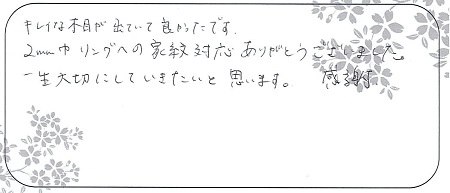 キレイな木目が出ていて良かったです.
2mm巾リングへの家紋対応ありがとうございました。
一生大切にしていきたいと思います。 感謝